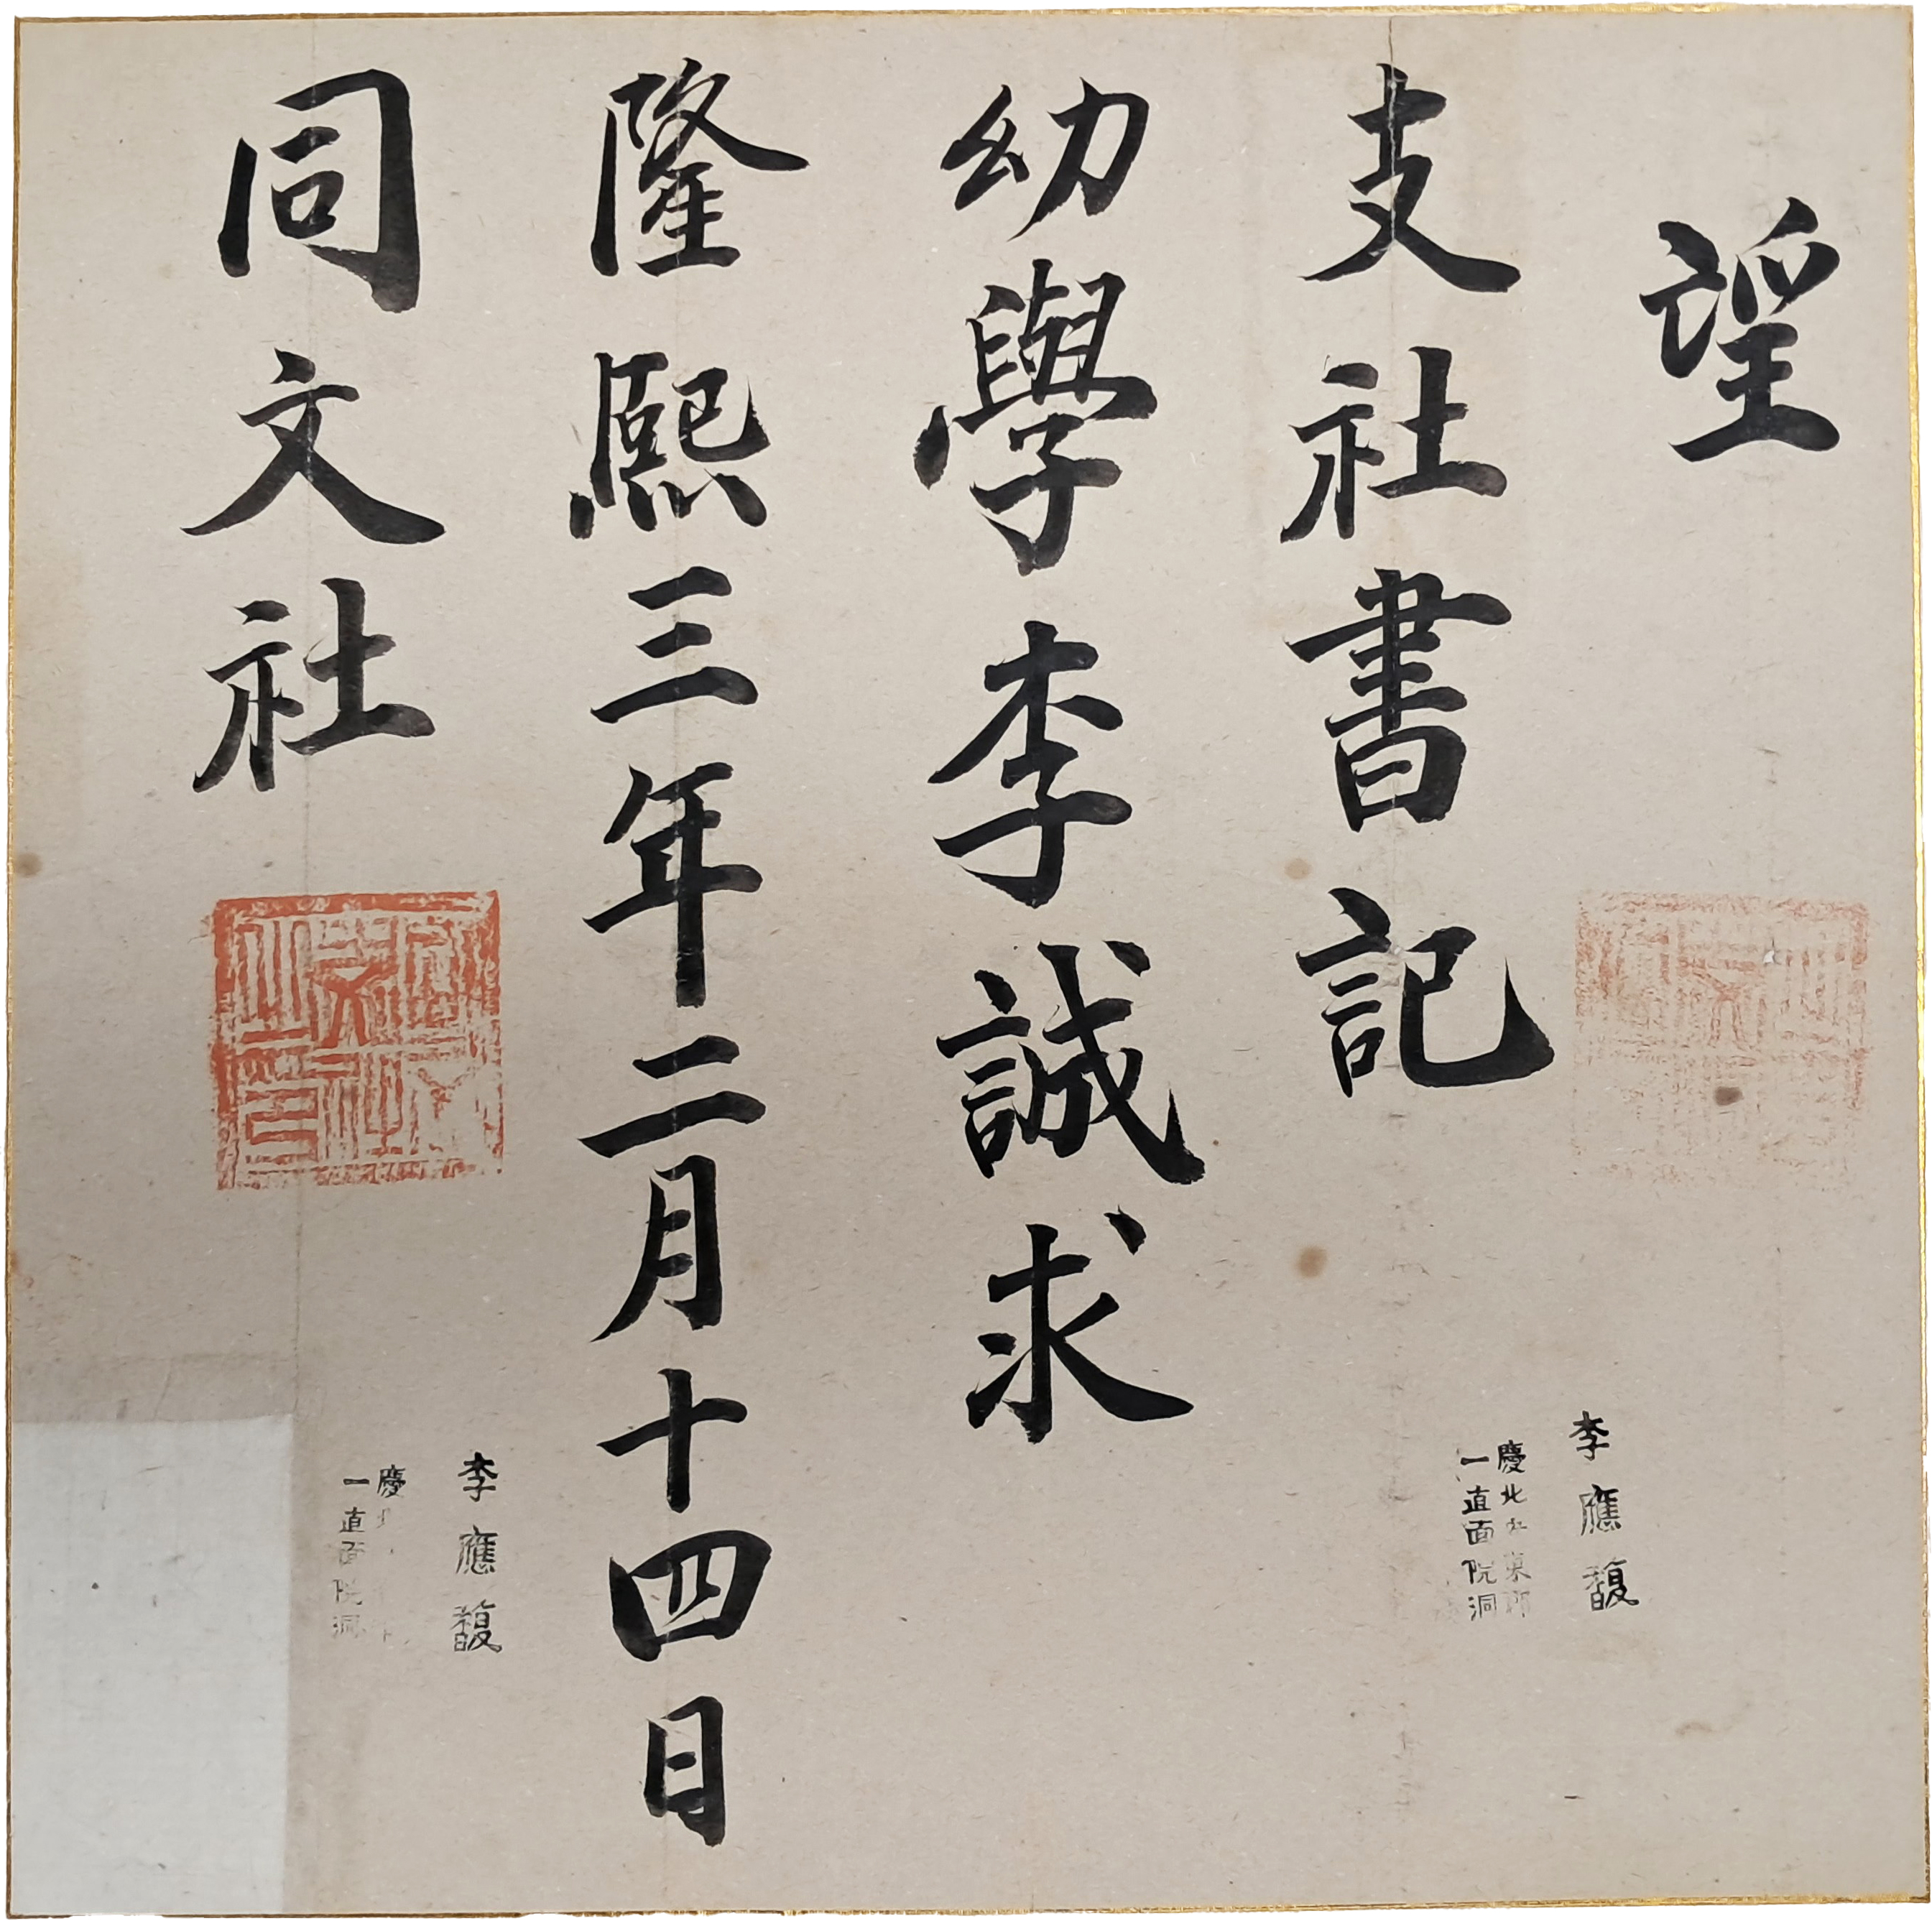 望
支社書記
幼學李誠求
隆熙三年二月十四日
同文社
李應馥
慶北安東郡
一直面院洞
李應馥
慶北
一直面院洞